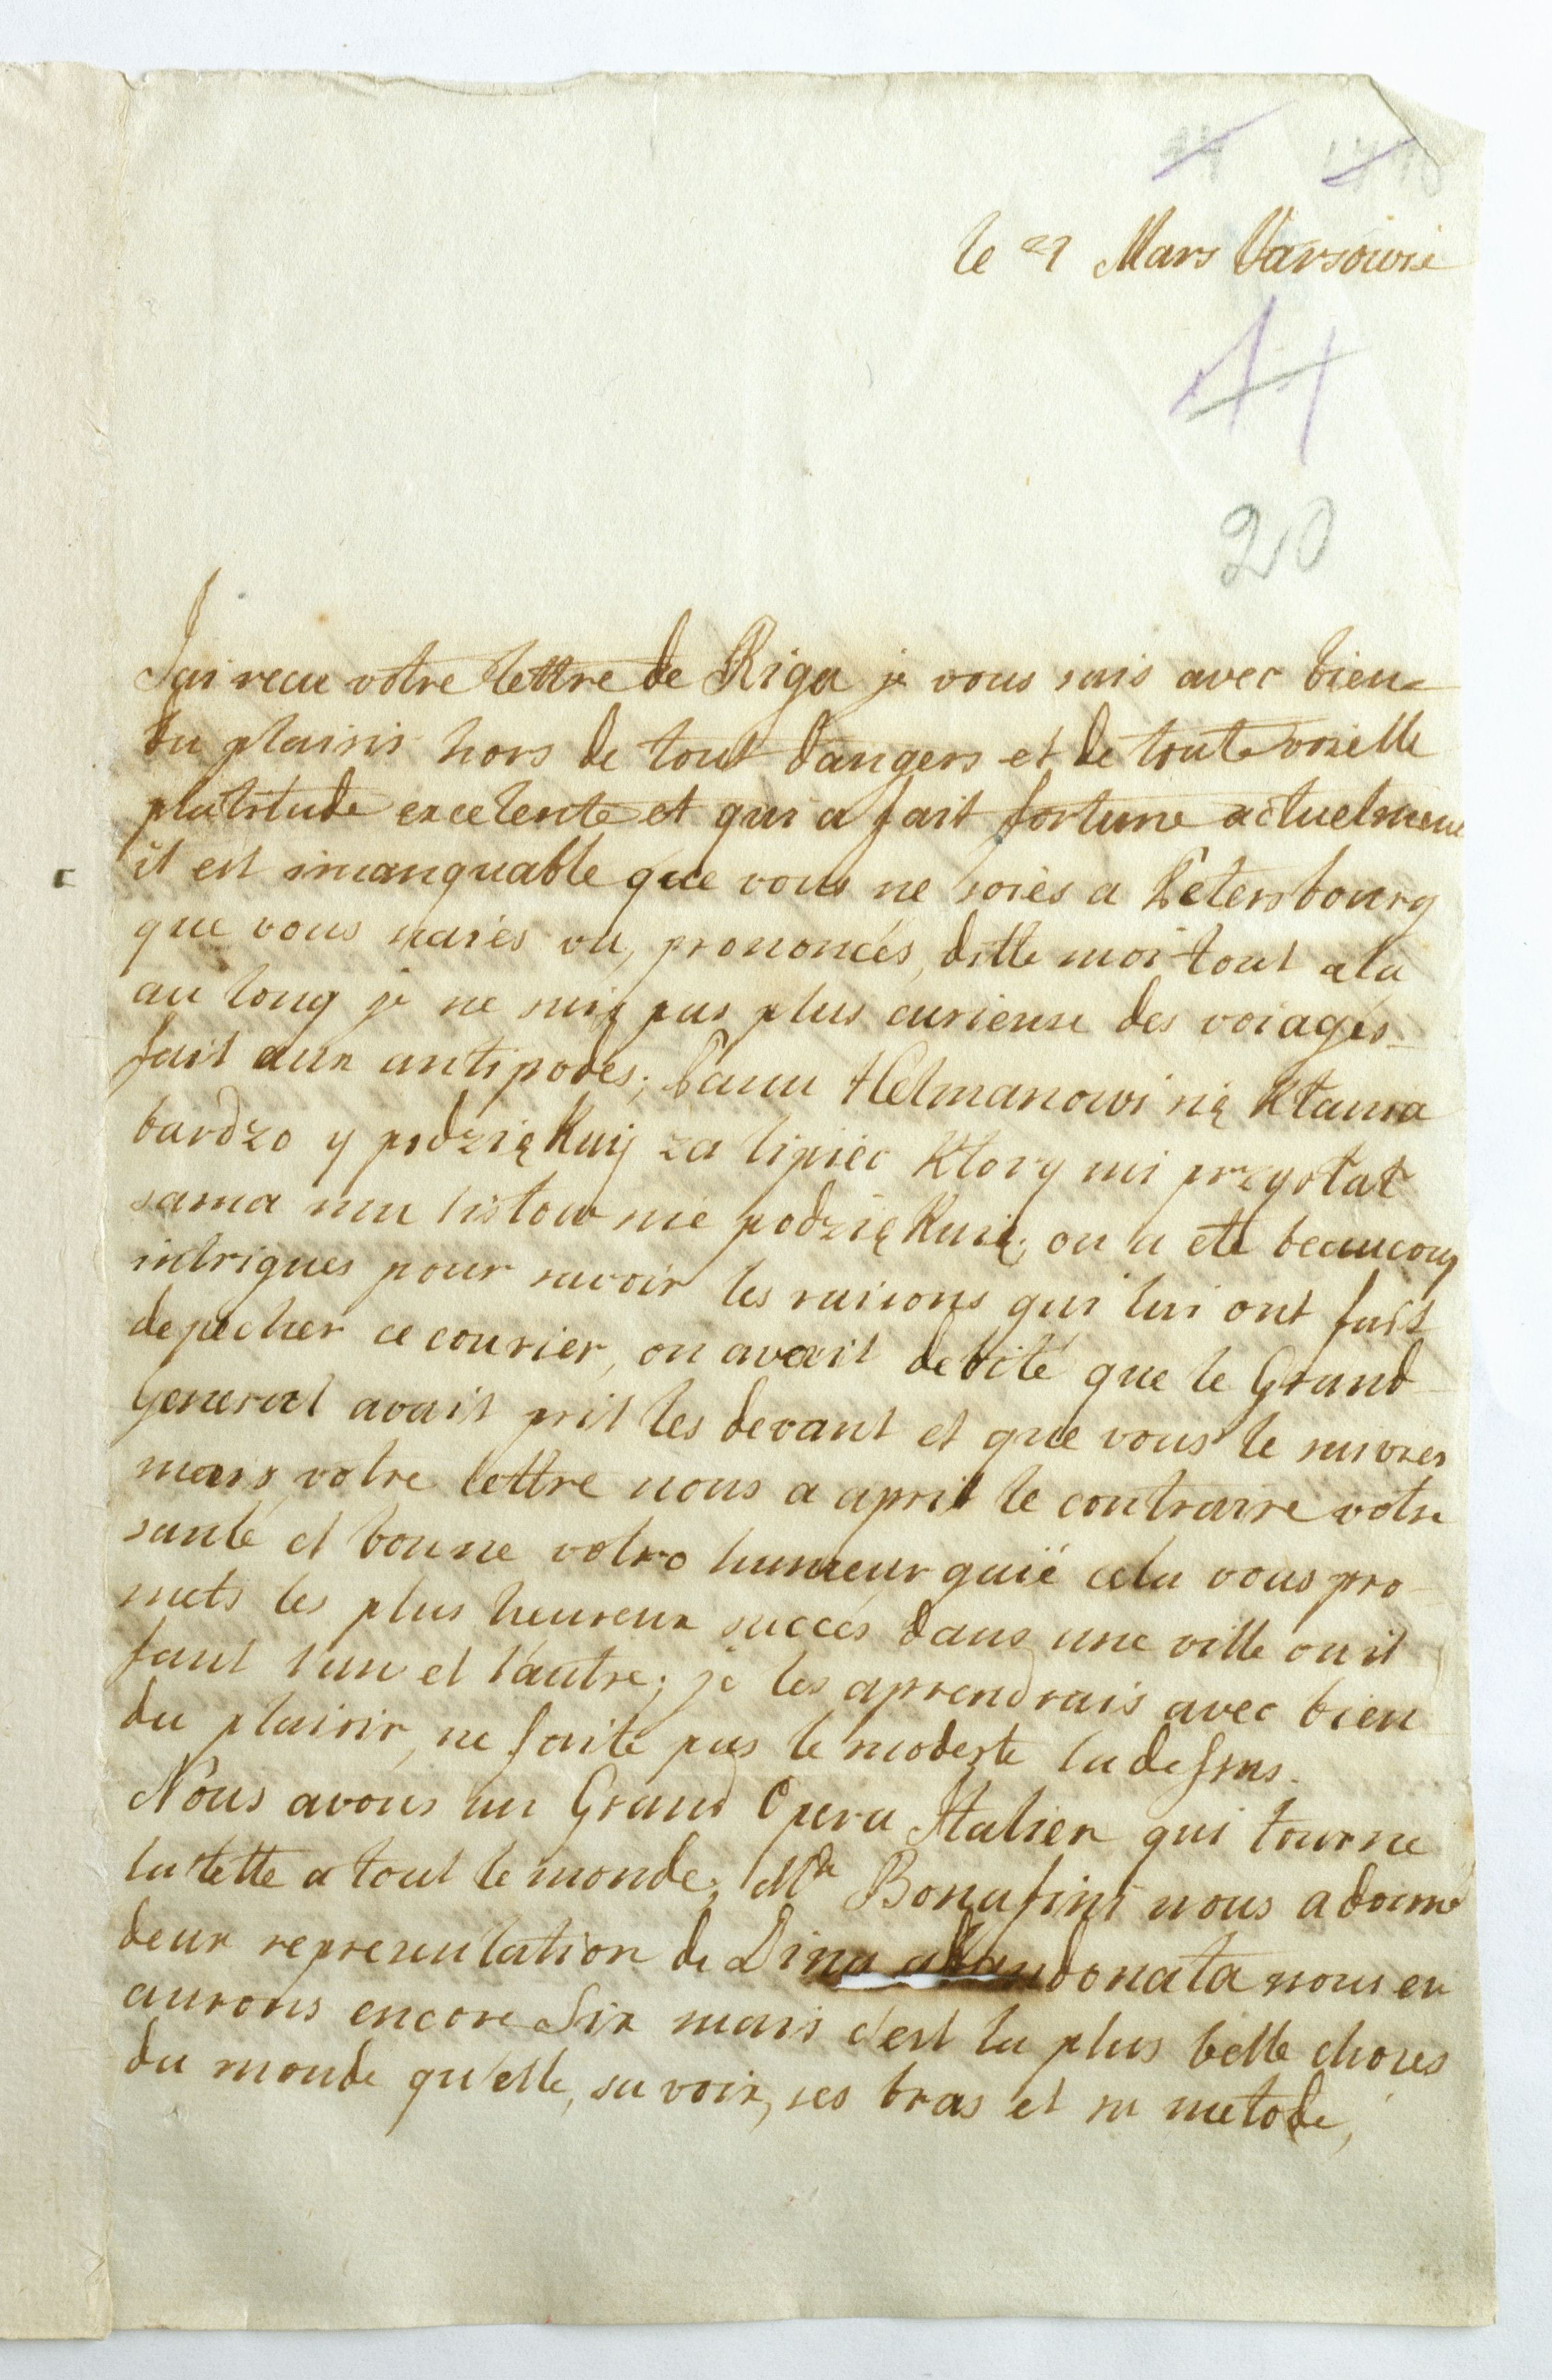 le 21 Mars Varsowie
11
20
Jai recu votre lettre de Riga je vous sais avec bien
du plaisir hors de tout dangers et de toute voielle
platitude excelente et qui a fait fortune actuelment
il est imanquable que vous ne soiés a Petersbourg
que vous naiés vu, prononcés, ditte moi tout ala
au long je ne suis pas plus curieuse des voiages
fait aux antipodes; Panu Hetmanowi się kłania
bardzo y podziękuij za lipiec ktory mi przysłał
sama mu listow nie podziękuię; on a eté beaucoup
intrigues pour savoir les raisons qui lui ont fait
depecher ce courier, on avait debité que le Grand
General avait prit les devant et que vous le suivres
mais votre lettre nous a aprit le contraire votre
santé et bonne votre humeur gaié cela vous pro
mets les plus heureux succés dans une ville ou il
faut l'un et l'autre; je les aprendrais avec bien
du plaisir, ne faite pas le modeste la dessus.
Nous avons un Grand Opera Italien qui tourne
la tette a tout le monde; Mde Bonafini nous a donné
deux representation de Dina abandonata nous en
aurons encore Six mais c'est la plus belle choses
du monde qu'elle, sa voix, ses bras et sa metode,